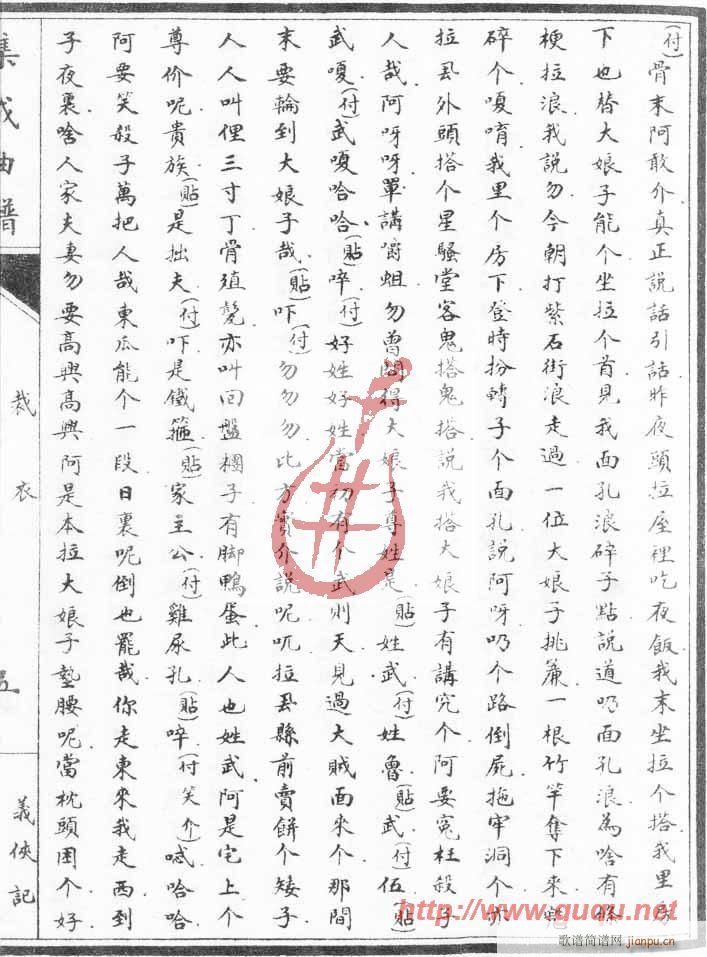 (付)骨末阿敢介真正説話引話昨夜頭拉屋裡吃夜飯我末坐拉个搭我里房
下也替大娘子能个坐拉个首見我面孔浪碎子點説道吶面孔浪為啥有條
梗拉浪我説勿今朝打紫石街浪走過一位大娘子挑簾一根竹竿奪下來
碎个嗄唷我里个房下登時扮轉子个面孔説阿呀吶个路倒屍拖牢洞个亦
拉厾外頭搭个星騷堂客鬼搭鬼搭説我搭大娘子有講究个阿要冤枉殺子
人哉阿呀呀單講嚼蛆勿曾問得大娘子尊姓是(貼)姓武(付)姓魯(貼)武(付)伍(貼)
武嗄(付)武嗄哈哈(貼)啐(付)好姓好姓當初有个武則天見過大賊面來个那間
末要輪到大娘子哉(貼)吓(付)勿勿勿比方實介説呢吼拉厾縣前賣餅个矮子
人人叫俚三寸丁骨殖甏亦叫回盤糰子有脚鴨蛋此人也姓武阿是宅上个
尊价呢貴族(貼)是拙夫(付)吓是鐵箍(貼)家主公(付)雞屎孔(貼)啐(付笑介)喊哈哈
阿要笑殺子萬把人哉東瓜能个一段日裏呢倒也罷哉你走東來我走西到
子夜裏啥人家夫妻勿要高興高興阿是本拉大娘子墊腰呢當枕頭困个好
集成曲譜
裁衣
五
義俠記
http://www.ququ.net
歌谱简谱网
jianpu.cn